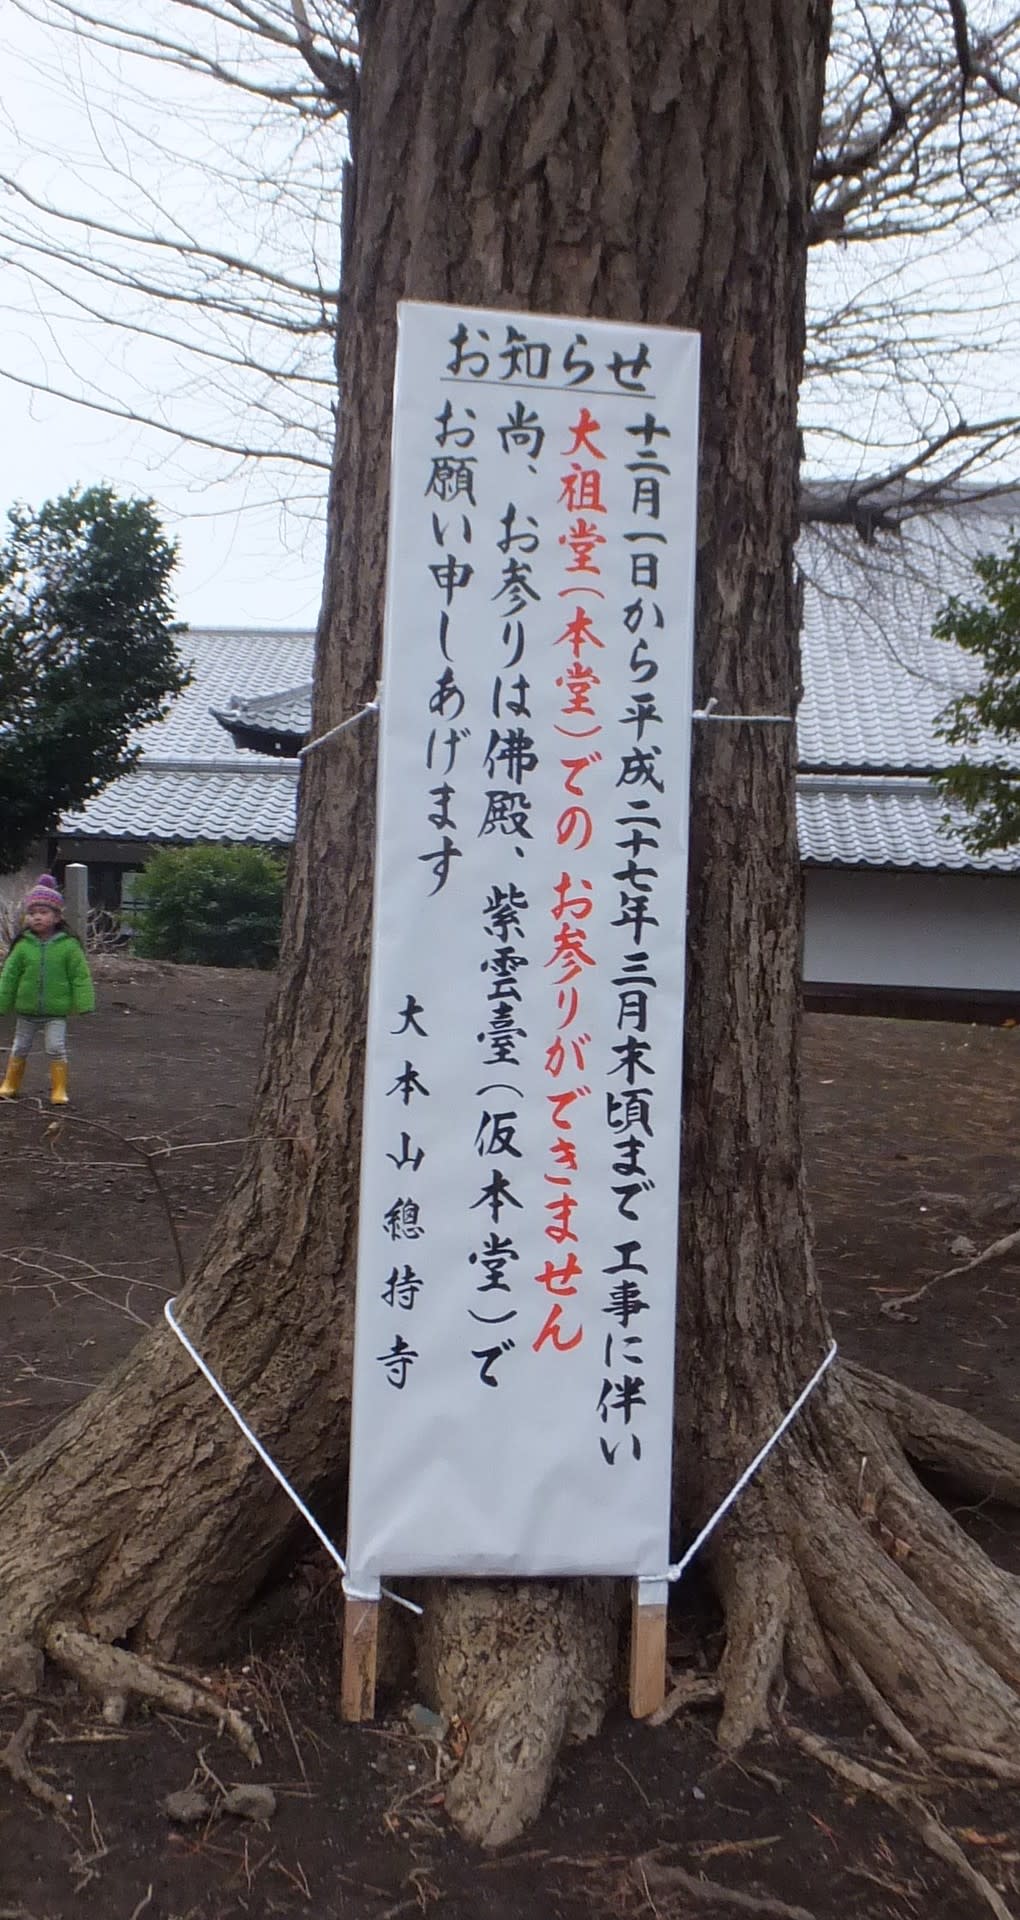 お知らせ
十二月一日から平成二十七年三月末頃まで工事に伴い
大祖堂(本堂)でのお参りができません
尚、お参りは佛殿、紫雲臺(仮本堂)で
お願い申しあげます
大本山總持寺